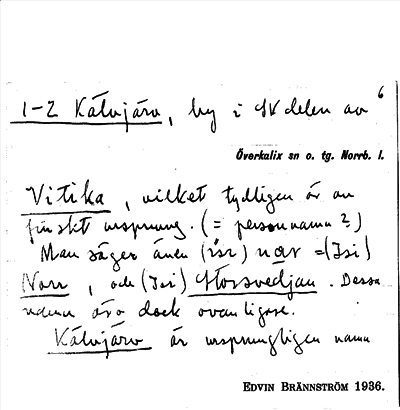 1-2 Kälvjärv, by i SV delen av 6
Överkalix sn o. tg. Norrb. l.
Vitika, vilket tydligen är av
finskt ursprung. (= personnamn?)
Man säger även (isr) nær =(Isi)
Norr, och (Isi) Storsvedjan. Dessa
namn äro dock ovanligare.
Kälvjärv är ursprungligen namn
EDVIN BRÄNNSTRÖM 1936.